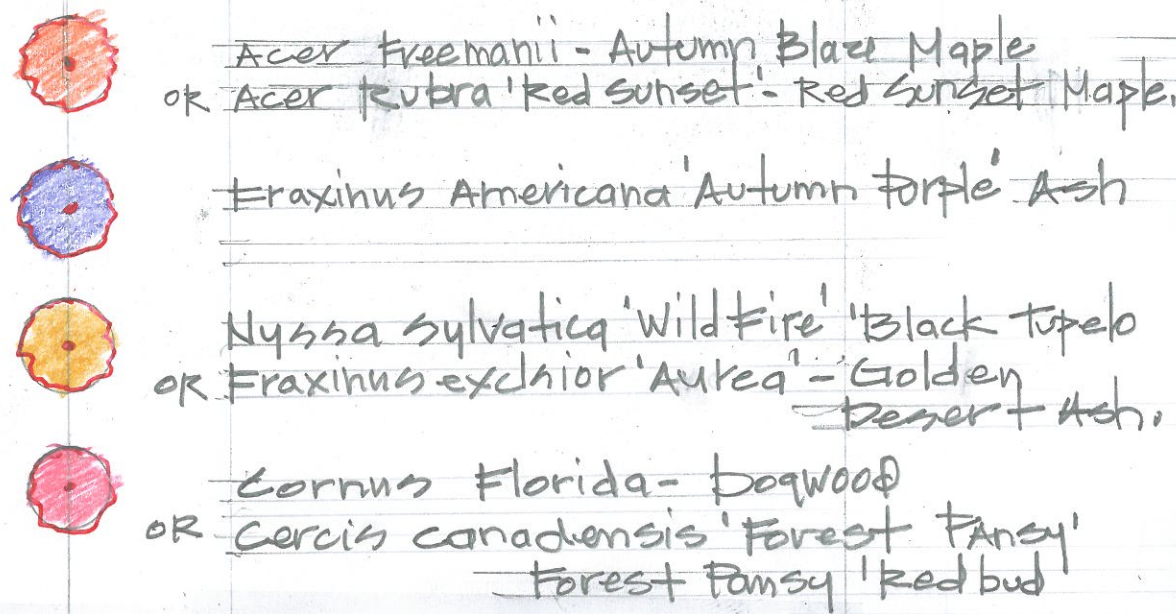 Acer Freemanii - Autumn Blaze Maple
OR Acer Rubra 'Red Sunset' - Red Sunset Maple.
Fraxinus Americana 'Autumn Purple' Ash
Nyssa sylvatica 'Wild Fire' 'Black Tupelo
OR Fraxinus exclsior 'Aurea' - Golden
Desert Ash.
Cornus Florida - Dogwood
OR Cercis canadensis 'Forest Pansy'
Forest Pansy 'Redbud'